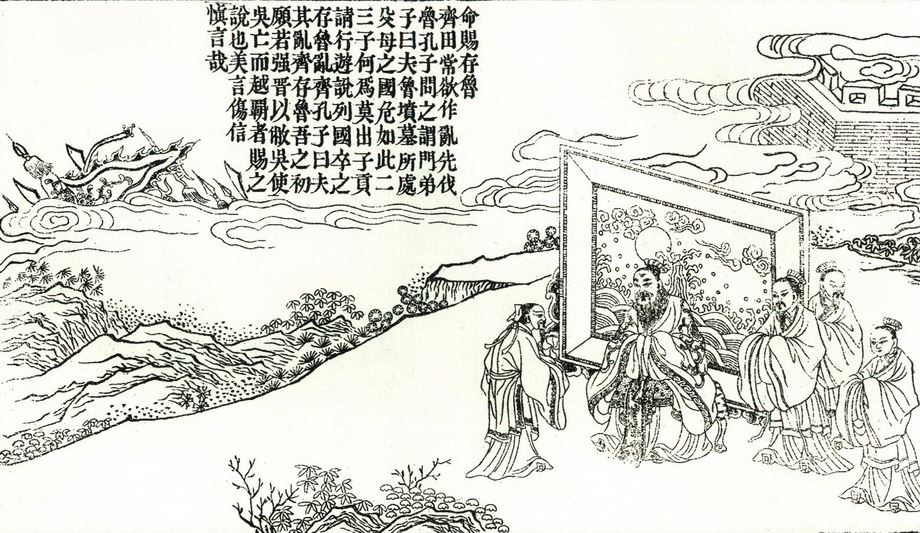 命賜存魯
齊田常欲作亂先伐
魯孔子問之謂門弟
子曰夫魯墳墓所處
父母之國危如此二
三子何爲莫出子貢
請行遊說列國卒之
存魯亂齊孔子曰夫
其亂齊存魯吾之初
願若强晉以敝吳使
吳亡而越覇者賜之
說也美言傷信
慎言哉